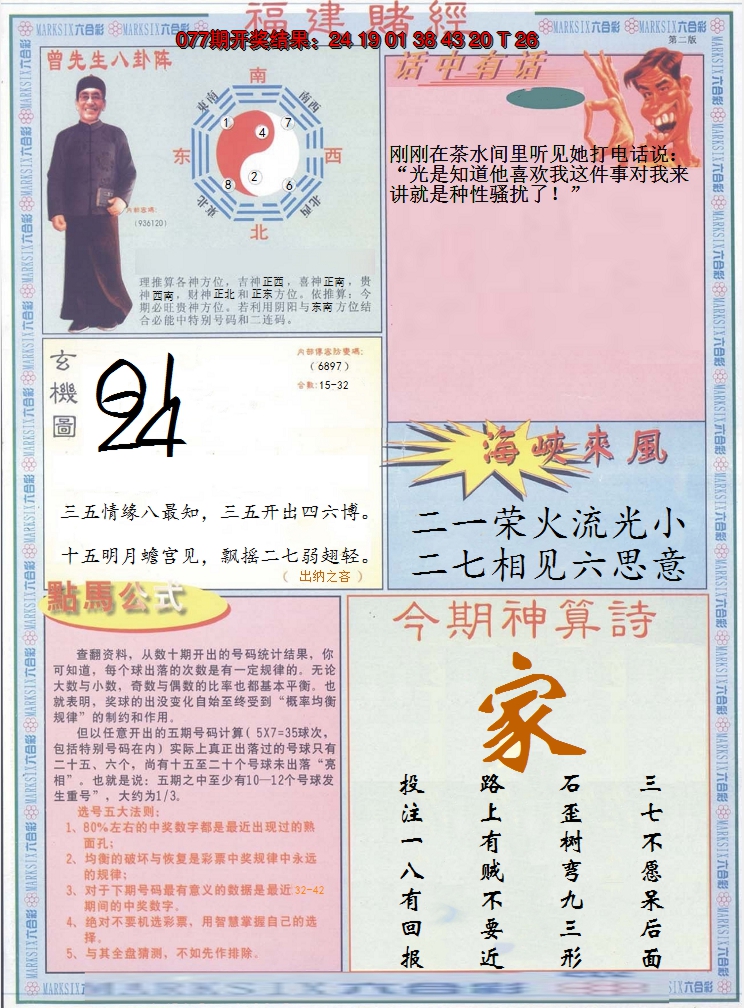 福建賭經
077期开奖结果：24 19 01 38 43 20 T 26
第二版
曾先生八卦阵
南
東南
南西
1
4
7
东
西
8
2
6
東北
北西
北
内部密碼:
(936120)
理推算各神方位，吉神正西，喜神正南，贵
神西南，财神正北和正东方位。依推算：今
期必旺贵神方位。若利用阴阳与东南方位结
合必能中特别号码和二连码。
话中有话
刚刚在茶水间里听见她打电话说：
“光是知道他喜欢我这件事对我来
讲就是种性骚扰了！”
玄機圖
内部傳密防變碼:
(6897)
合數:15-32
三五情缘八最知，三五开出四六博。
十五明月蟾宫见，飘摇二七弱翅轻。
（ 出纳之吝 ）
海峽來風
二一荣火流光小
二七相见六思意
點馬公式
查翻资料，从数十期开出的号码统计结果，你
可知道，每个球出落的次数是有一定规律的。无论
大数与小数，奇数与偶数的比率也都基本平衡。也
就表明，奖球的出没变化自始至终受到“概率均衡
规律”的制约和作用。
但以任意开出的五期号码计算( 5X7=35球次，
包括特别号码在内) 实际上真正出落过的号球只有
二十五、六个，尚有十五至二十个号球未出落“亮
相”。也就是说：五期之中至少有10—12个号球发
生重号”，大约为1/3。
选号五大法则：
1、80%左右的中奖数字都是最近出现过的熟
面孔；
2、均衡的破坏与恢复是彩票中奖规律中永远
的规律；
3、对于下期号码最有意义的数据是最近32-42
期间的中奖数字。
4、绝对不要机选彩票，用智慧掌握自己的选
择。
5、与其全盘猜测，不如先作排除。
今期神算詩
家
三七不愿呆后面
石歪树弯九三形
路上有贼不要近
投注一八有回报
MARKSIX六合彩